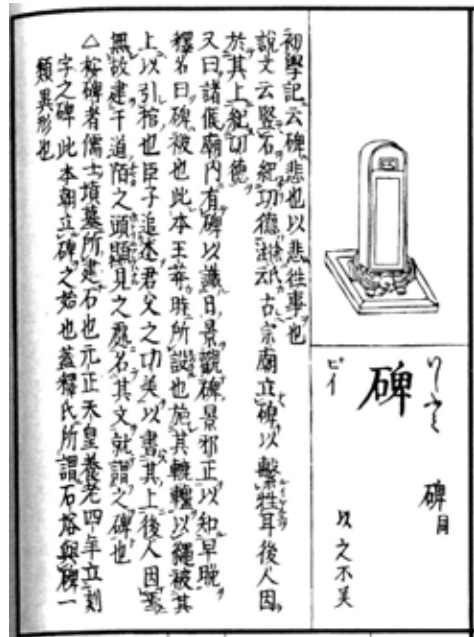 碑
ピイ
初學記云碑悲也以悲往事也
說文云竪石紀功德徐氏註云古宗廟立碑以繫牲耳後人因
於其上紀功德
又曰諸侯廟內有碑以識日景觀碑景邪正以知早晚
釋名曰碑被也此本王莽時所設也施其轆轤以繩被其
上以引棺也臣子追述君父之功美以書其上後人因焉
無故建于道陌之頭顯見之處名其文就謂之碑也
△桉碑者儒士墳墓所建石也元正天皇養老四年立刻
字之碑此本朝立碑之始也蓋釋氏所謂石塔與碑一
類異形也